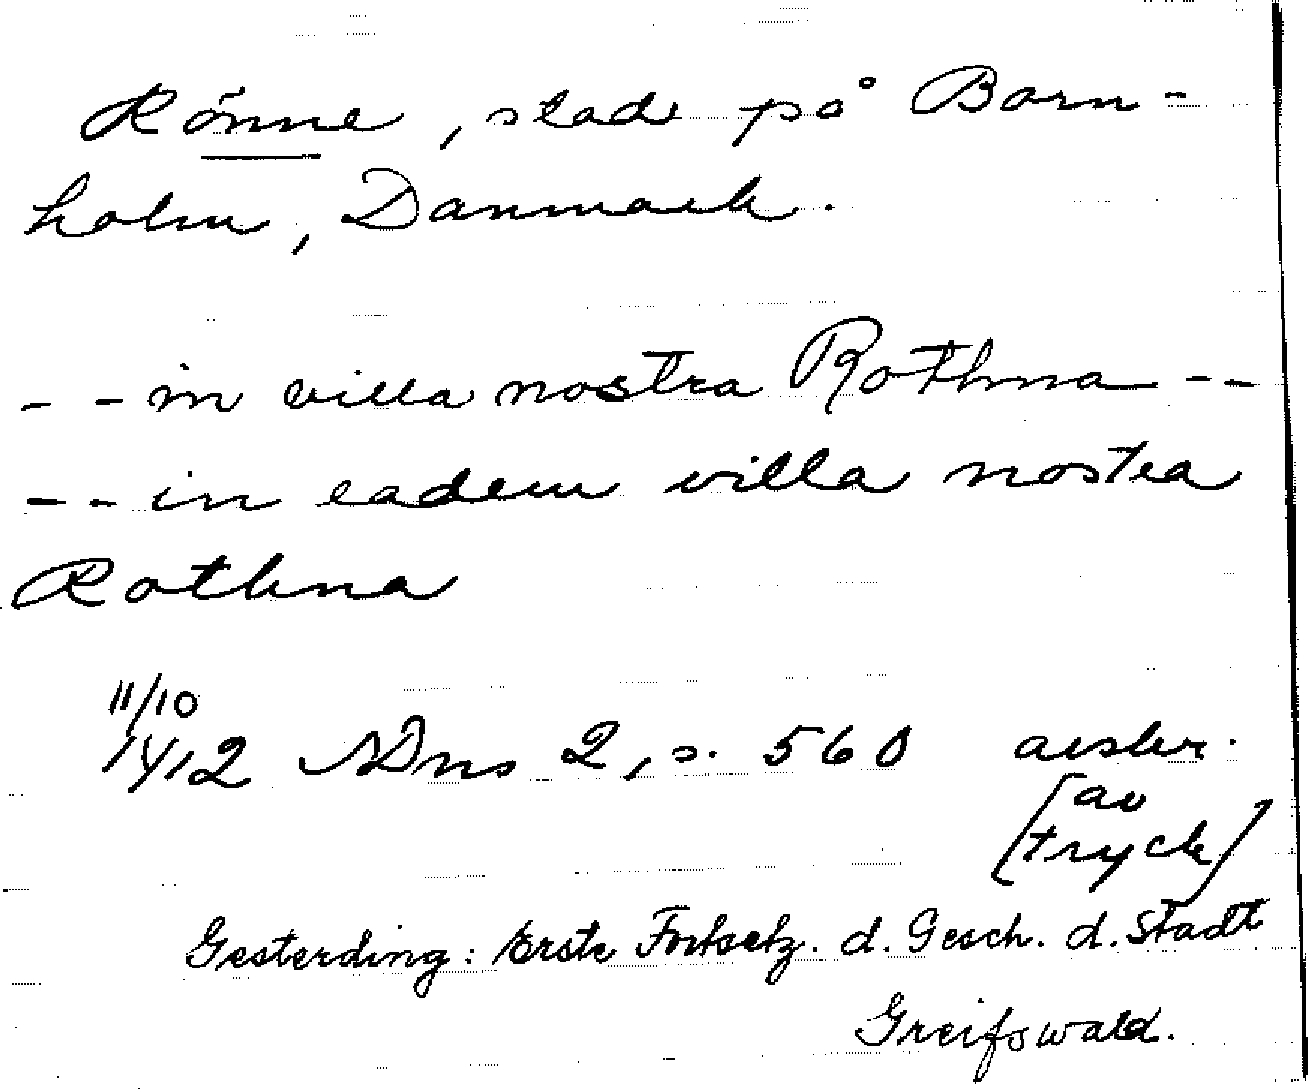 Rönne, stad på Born-
holm, Danmark.
- - in villa nostra Rothna - -
- - in eadem villa nostra
Rothna
11/10
1412 NDns 2, s. 560 avskr.
[av
tryck]
Gesterding: Erste Fortsetz. d. Gesch. d. Stadt
Greifswald.